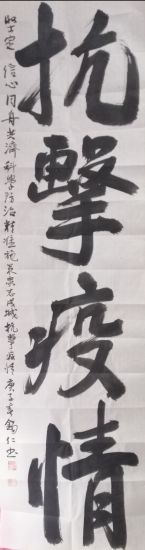 抗擊疫情
堅定信心同舟共濟科學防治精准施策眾志成城抗擊疫情庚子春錫仁書